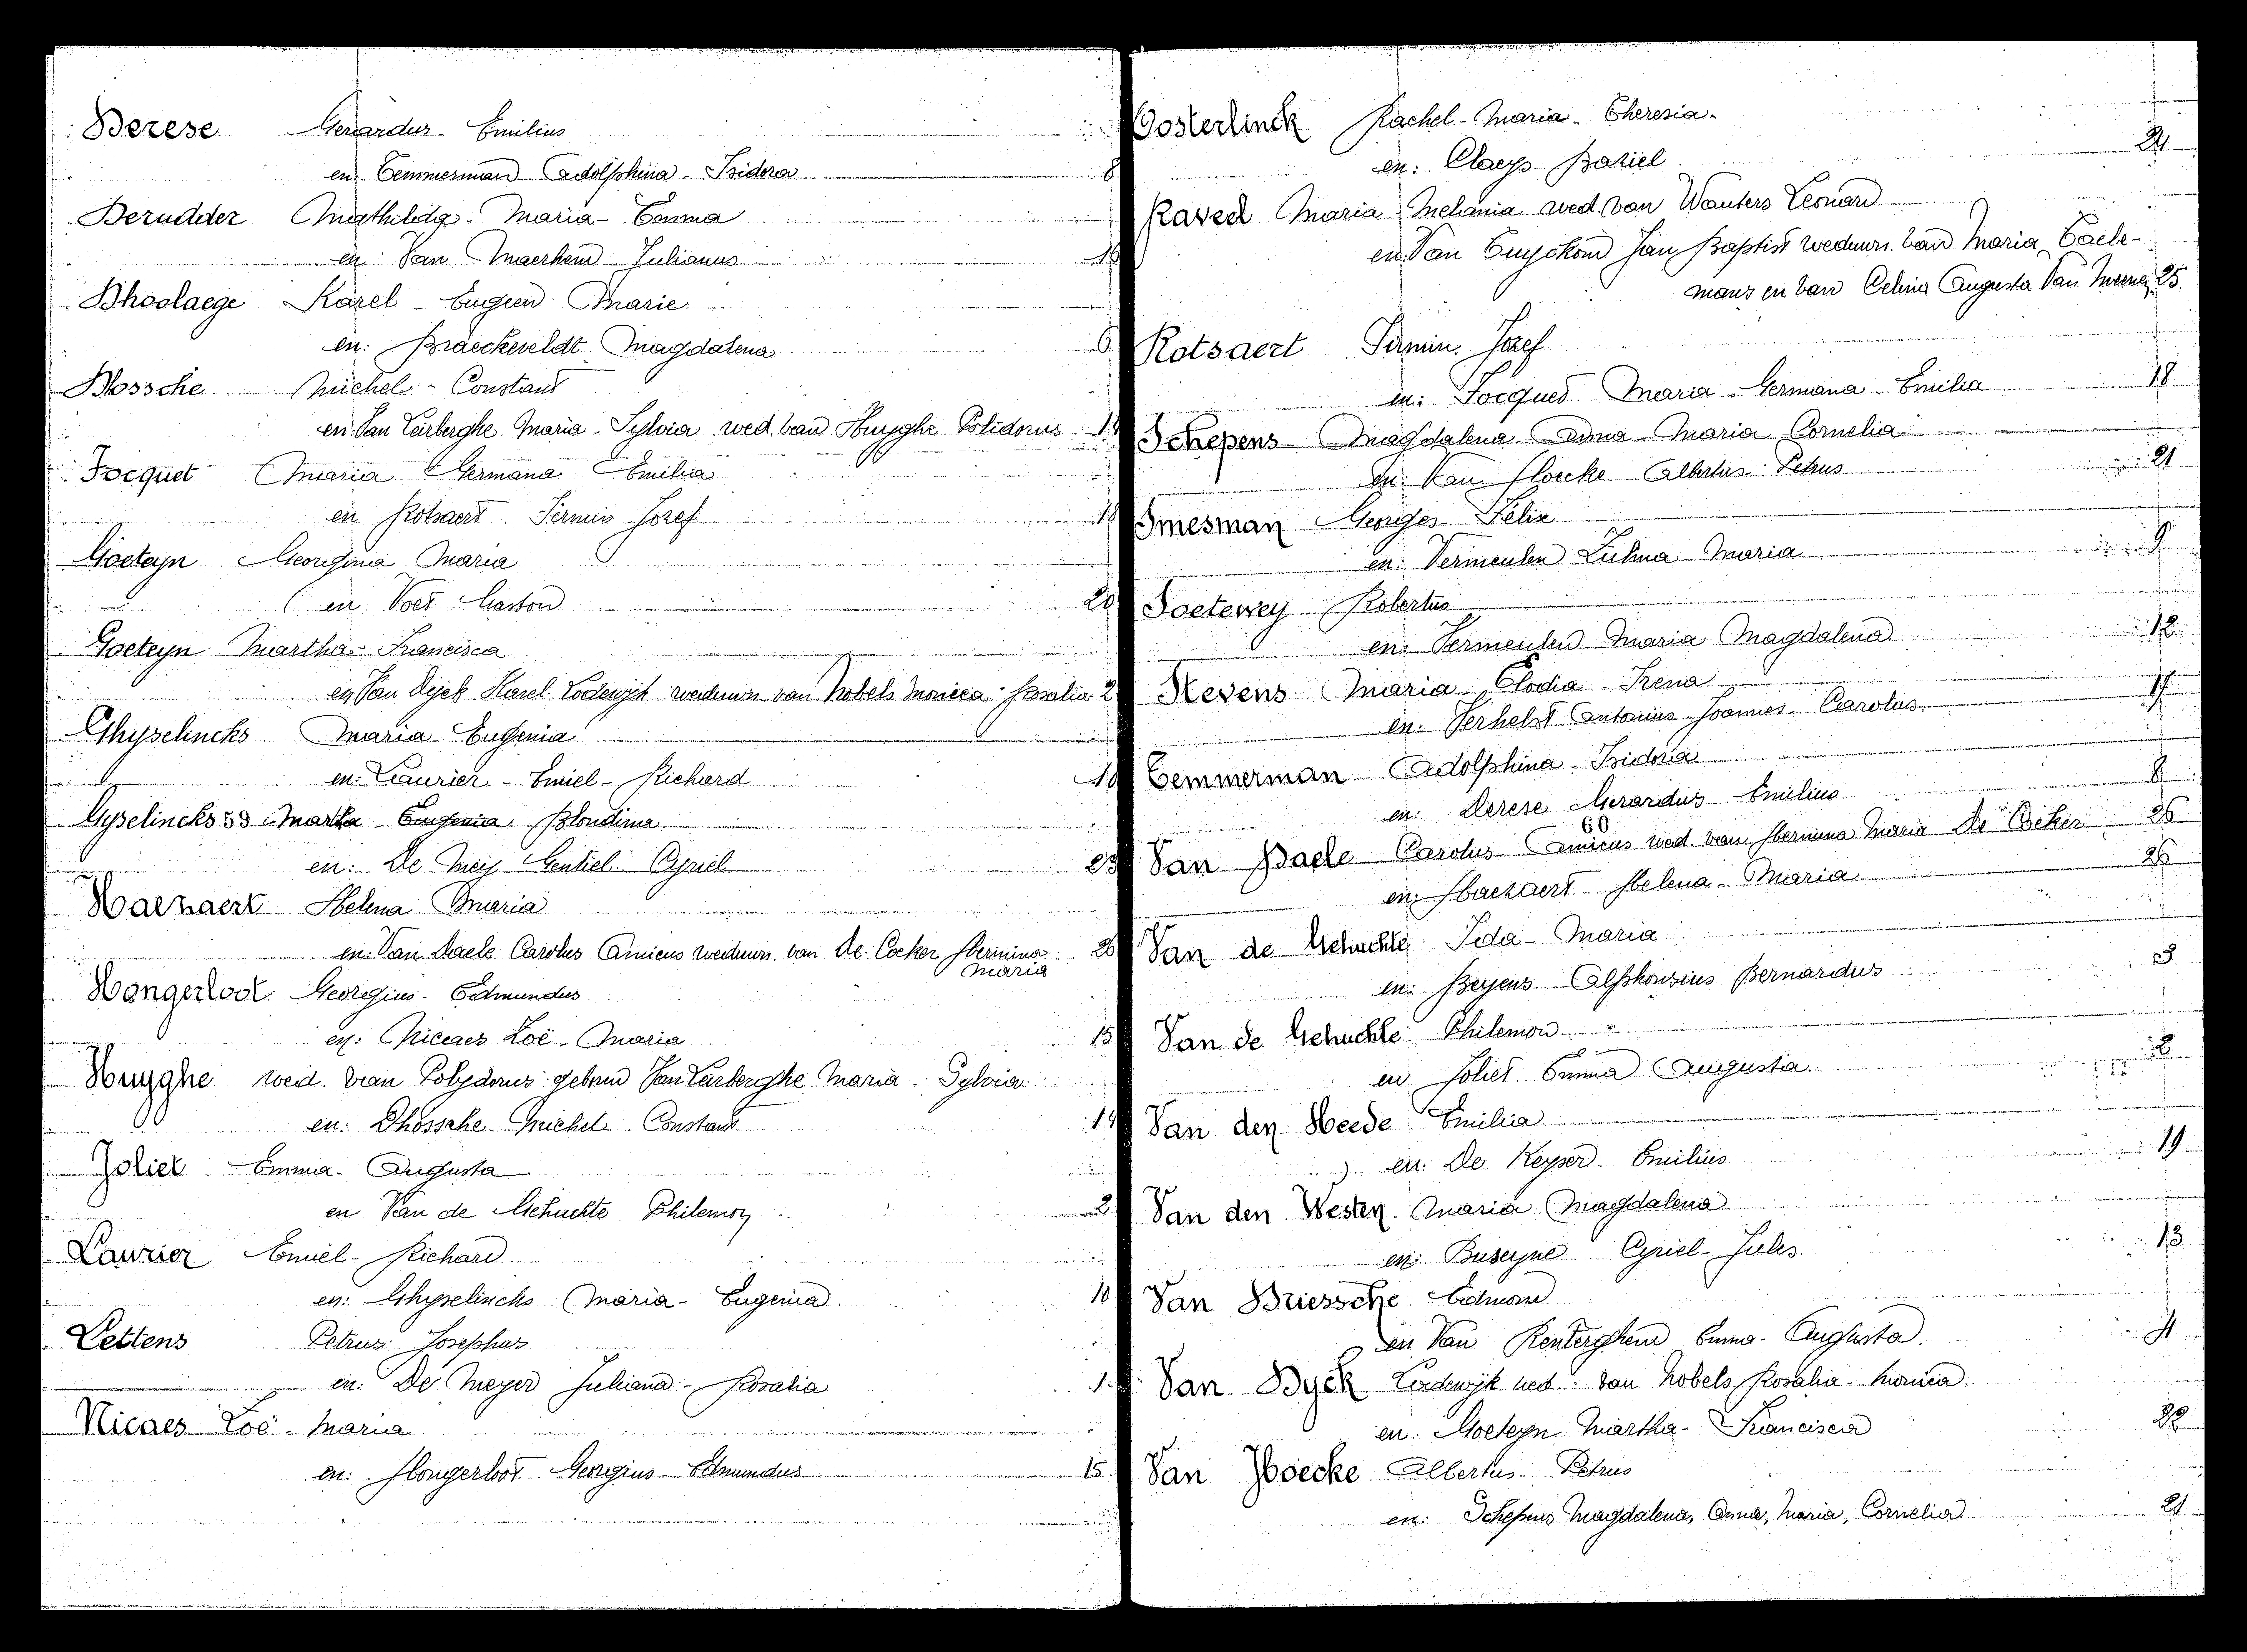 Derese Gerardus - Emilius
en Temmerman Adolphina - Isidora 8
Derudder Mathilda - Maria - Emma
en Van Maerhem Julianus 16
Dhoolaege Karel - Eugeen Marie
en: Braeckeveldt Magdalena 6
Dhossche Michel - Constant
en Van Larberghe Maria - Sylvia wed. van Huyghe Polidorus 14
Focquet Maria Germana Emilia
en Rotsaert Firmin Jozef 18
Goeteyn Georgina Maria
en Voet Gaston 20
Goeteyn Martha - Francisca
en Van Dijck Karel Lodewijk weduwn. van Nobels Monica - Rosalia 2
Ghyselincks Maria Eugenia
en: Laurier - Emiel - Richard 10
Gyselincks 53 Maria Eugenia Blondina
en: De Mey Gentiel Cyriel 23
Haezaert Helena Maria
en: Van Daele Carolus Amicus weduwn. van De Cocker Hermina 26
Maria
Hongerloot Georgius - Edmundus
en: Nicaes Zoë - Maria 15
Huyghe wed. van Polydorus geboren Van Larberghe Maria - Sylvia
en: Dhossche Michel Constant 14
Joliet Emma - Augusta
en Van de Gehuchte Philemon 2
Laurier Emiel - Richard
en: Ghyselincks Maria - Eugenia 10
Lettens Petrus Josephus
en: De Meyer Juliana - Rosalia 1
Nicaes Zoë - Maria
en: Hongerloot Georgius - Edmundus 15
Oosterlinck Rachel - Maria - Theresia -
en: Claeys Baziel 24
Raved Maria Melania wed. van Wauters Leonard
en Van Cuyckom Jan Baptist weduwn. van Maria Taele-
mans en van Celina Augusta Van 25
Rotsaert Firmin Jozef
en: Focqued Maria - Germana - Emilia 18
Schepens Magdalena Anna - Maria Cornelia
en: Van Hoecke Albertus Petrus 21
Smesman Georges - Felix
en: Vermeulen Zulma Maria 9
Soetewey Robertus
en: Vermeulen Maria Magdalena 12
Stevens Maria - Elodia - Irena
en: Verhelst Antonius Joannes - Carolus 17
Temmerman Adolphina - Isidoria
en: Derese Gerardus Emilius 8
60
Van Daele Carolus Amicus wed. van Hermina Maria De Cocker 26
en: Haezaert Helena - Maria 26
Van de Gehuchte Ida - Maria
en: Beyens Alphonsius Bernardus 3
Van de Gehuchte Philemon
en Joliet Emma Augusta 2
Van den Heede Emilia
en: De Keyser Emilius 19
Van den Westen Maria Magdalena
en: Buseyne Cyriel - Jules 13
Van Driessche Edmond
en Van Renterghem Emma - Augusta 4
Van Dyck Lodewijk wed. van Nobels Rosalia - Monica
en: Goeteyn Martha - Francisca 22
Van Hoecke Albertus - Petrus
en: Schepens Magdalena, Anna, Maria, Cornelia 21